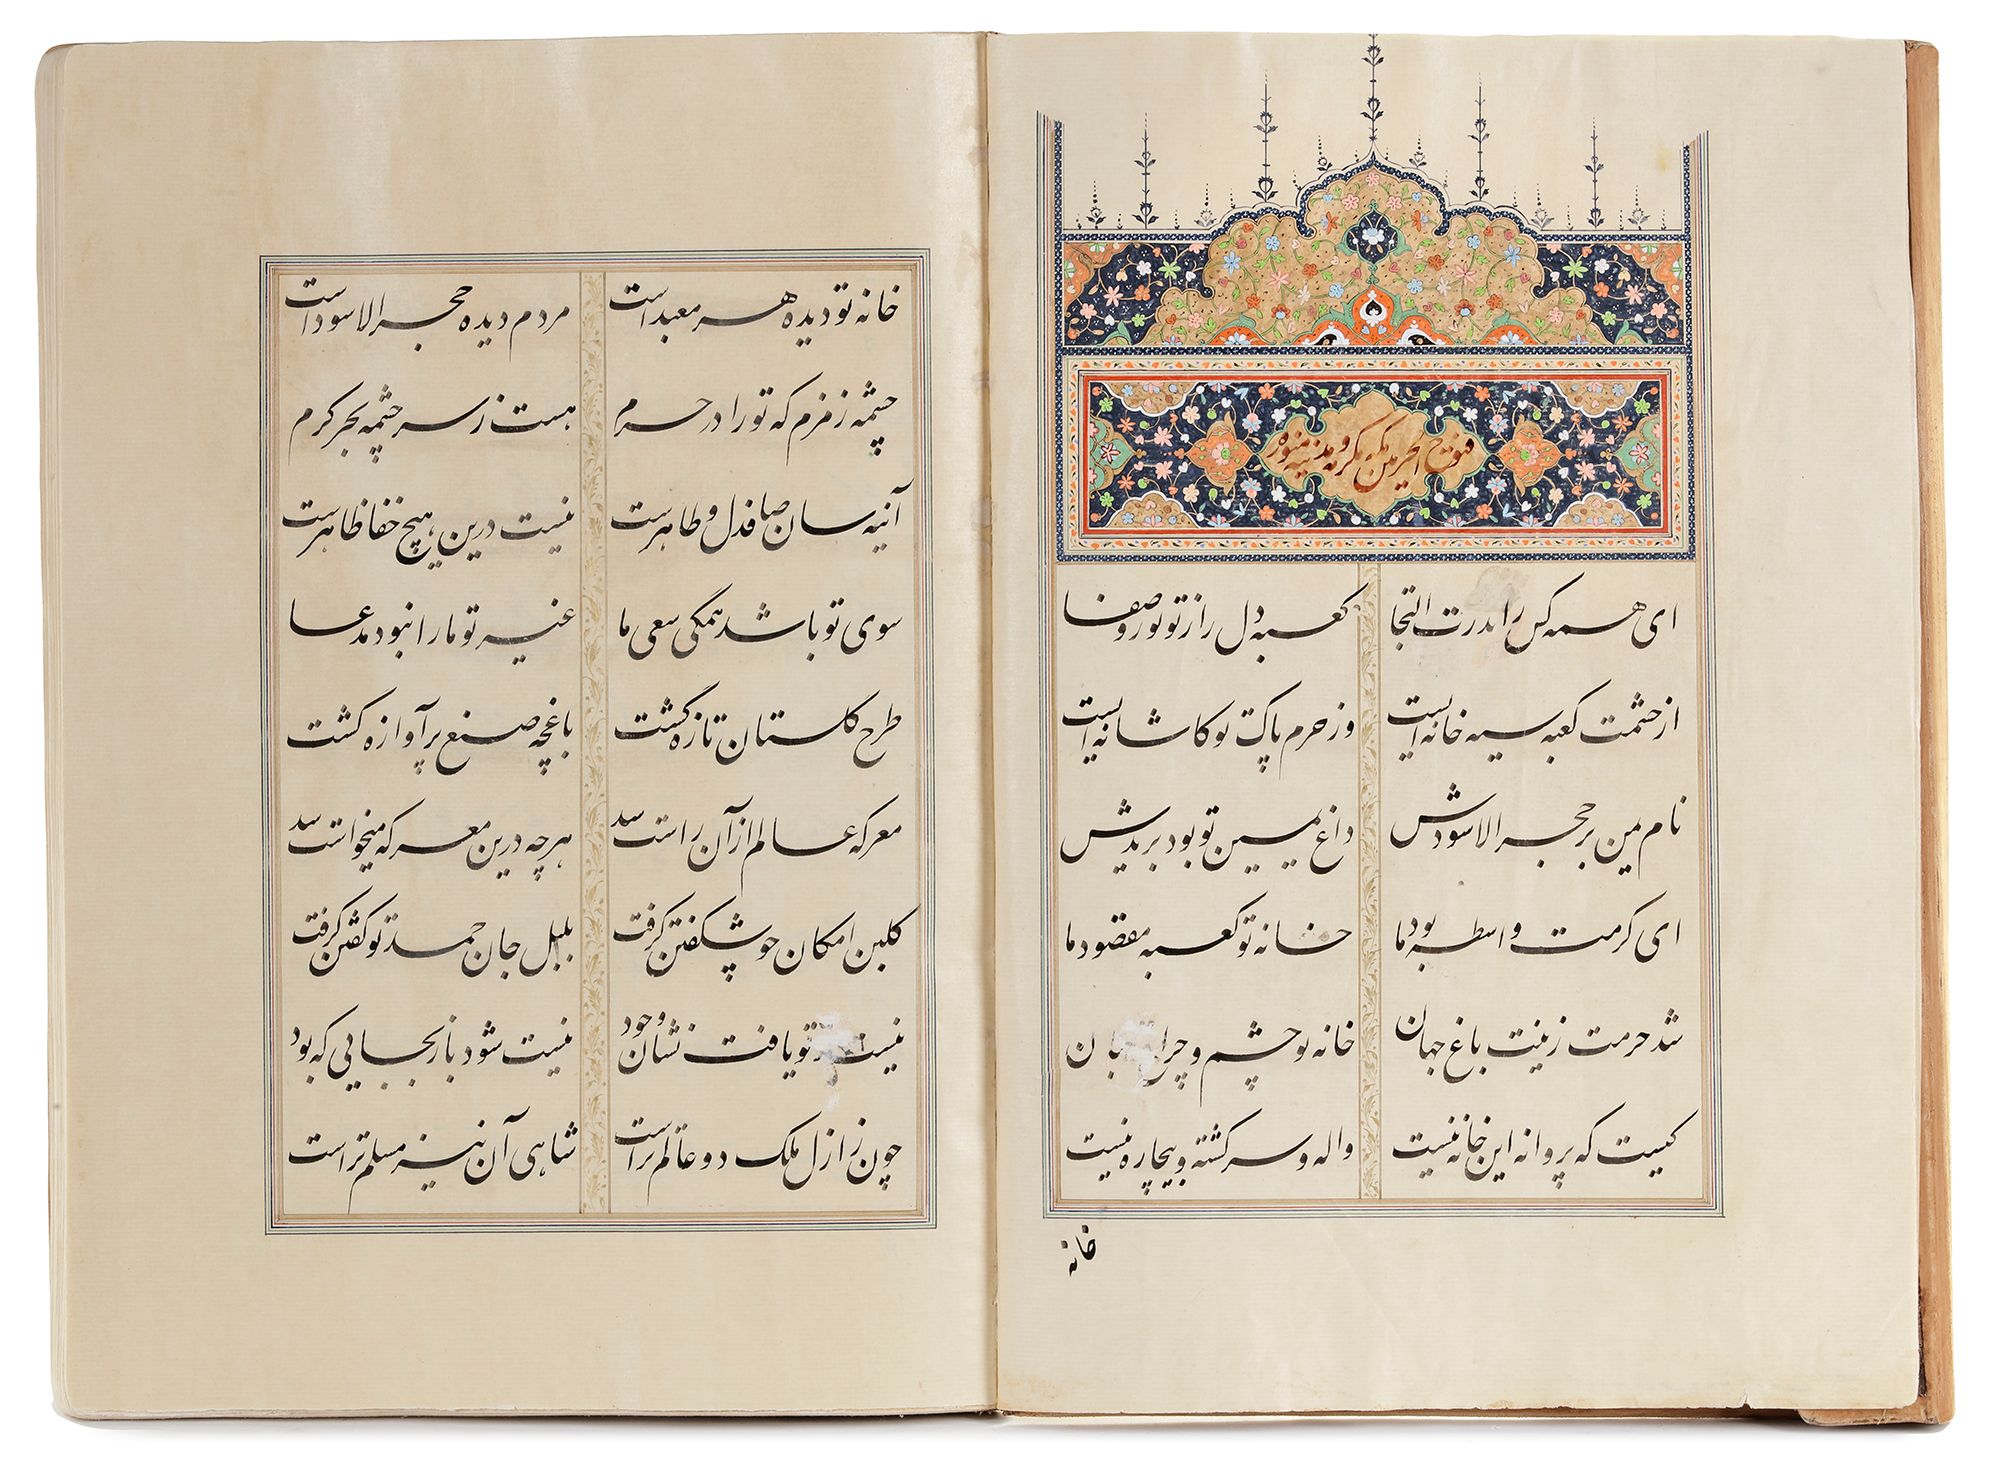 فتوح الحرمین مکه مکرمه و مدینه منوره
ای همه کس را بدرت التجا کعبه دل را ز تو نور و صفا
از حشمت کعبه سیه خانه ایست وز حرم پاک تو کاشانه ایست
نام من بر حجر الاسودش داغ یمین تو بود بر یدش
ای کرمت واسطه بود ما خانه تو کعبه مقصود ما
شد حرمت زینت باغ جهان خانه تو چشم و چراغ
کیست که پروانه این خانه نیست واله و سرگشته و بیچاره نیست
خانه
خانه تو دیده هر معبد است مردم دیده حجر الاسود است
چشمه زمزم که تو را در حرم هست ز سر چشمه بحر کرم
آنیه سان صافدل و طاهرست نیست درین هیچ خفا ظاهرست
سوی تو باشد همگی سعی ما غیر تو ما را نبود مدعا
طرح گلستان تازه گشت باغچه صنع پر آوازه گشت
معرکه عالم از آن راست شد هرچه درین معرکه میخواست شد
گلبن امکان چو شکفتن گرفت بلبل جان حمد تو گفتن گرفت
نیست تو یافت نشان وجود نیست شود باز بجایی که بود
چون ز ازل ملک دو عالم تراست شاهی آن نیز مسلم تراست